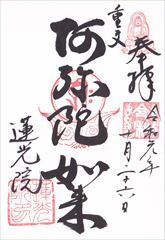 奉拝
重文
令和元年
十一月二十六日
阿弥陀如来
蓮光院